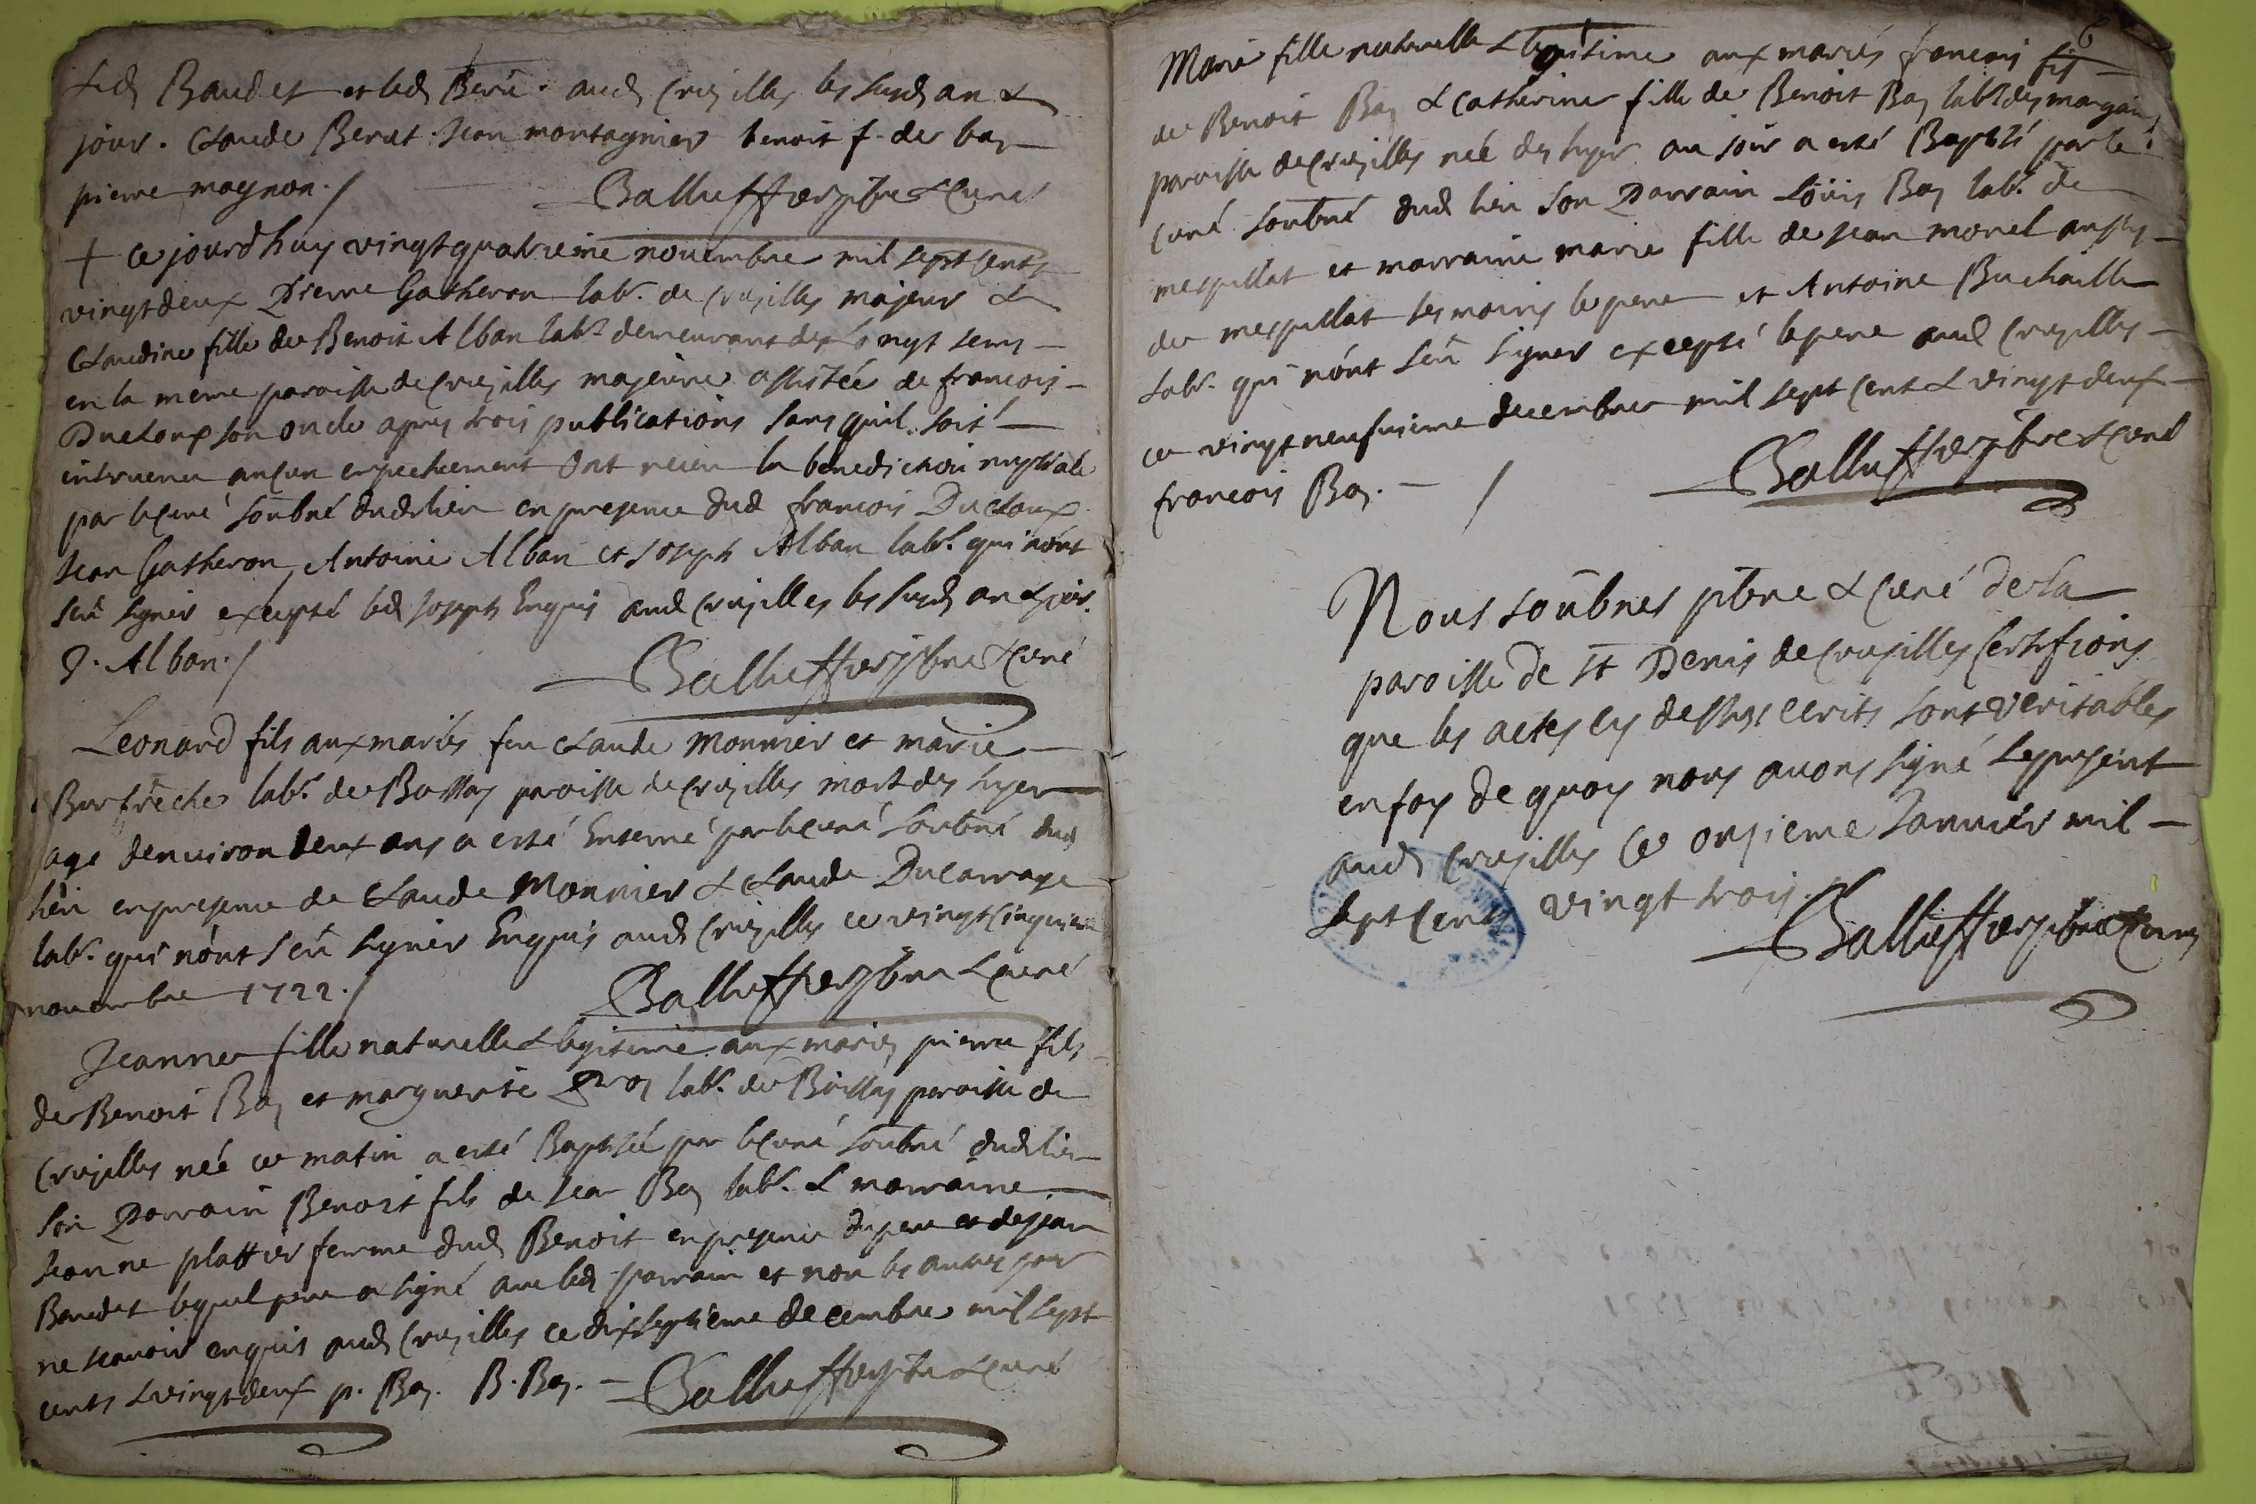 led Baudet et led Beru. aud Crusilles les susd an &
jour. Claude Berut Jean montagnier benoit f. de bay
pierre magnon./ Balluffier pbre & Curé
+ ce jourdhuy vingt quatrieme novembre mil sept cents
vingtdeux Pierre Gatheron labr. de Crusilles majeur &
Claudine fille de Benoit Alban labr. demeurant des Longt tems
en la meme paroisse de Crusilles majeure assistée de françois
Ducloux son oncle apres trois publications sans quil soit
intruenu aucun empechement Ont receu la benediction nuptiale
par le Curé soubné dud lieu en presence dud françois Ducloux
Jean Gatheron, Antoine Alban et Joseph Alban labr. qui nont
seu signer excepté led Joseph Enquis aud Crusilles les susd an & jour.
J. Alban./ Balluffier pbre & Curé
Leonard fils aux mariés feu Claude Monnier et marie
Burfreche labr. de Bassy paroisse de Crusilles mort des hyer
agé denuiron deux ans a esté Enterré par le Curé soubné dud
lieu en presence de Claude Monnier & Claude Ducarrage
labr. qui nont seu signer Enquis aud Crusilles ce vingt cinquieme
novembre 1722./ Balluffier pbre & Curé
Jeanne fille naturelle & legitime aux mariés pierre fils
de Benoit Bay et marguerite labr. de paroisse de
Crusilles neé ce matin a esté Baptisée par le Curé soubné dud lieu
son Parrain Benoist fils de Jean Bay labr. & marraine
Jeanne plattier femme dud Benoit en presence du pere et de jean
Baudet lequel pere a signé auec led parrain et non les autres pour
ne scauoir enquis aud Crusilles ce dixseptieme decembre mil sept
cents & vingtdeux p. Bay. B. Bay. Balluffier pbre & Curé
6
Marie fille naturelle & legitime aux mariés francois fils
de Benoit Bay & Catherine fille de Benoit Bay labr. des
paroisse de Crusilles neé des hyer au soir a esté Baptisé par le
Curé soubné dud lieu son Parrain Loüis Bay labr. de
mespillat et marraine marie fille de Jean morel aussy
de mespillat tesmoins le pere et Antoine Buchaille
labr. qui nont seu signer excepté le pere aud Crusilles
ce vingt neufuieme decembre mil sept Cent & vingt deux
francois Bay. / Balluffier pbre & Curé
Nous soubnes pbre & Curé de la
paroisse de St Denis de Crusilles Certifions
que les actes cy dessus ecrits sont veritables
en foy de quoy nous auons signé le present
aud Crusilles Ce onsieme Januier mil
sept Cent vingt trois. Balluffier pbre & Curé